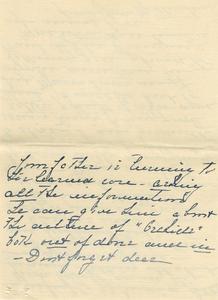 Your father is turning to
the learned one - asking
all the information
he can give him about
the culture of "Orchids"
both out of doors and in
- Dont forget dear